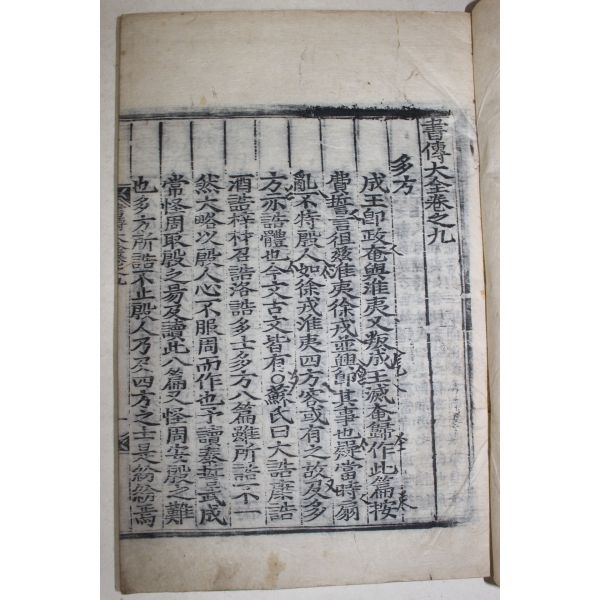 書傳大全卷之九
多方
成王即政奄與淮夷又叛成王滅奄歸作此篇按
費誓言徂玆淮夷徐戎並興即其事也疑當時扇
亂不特殷人如徐戎淮夷四方容或有之故及多
方亦誥體也今文古文皆有○蘇氏曰大誥康誥
酒誥梓材召誥洛誥多士多方八篇雖所誥不一
然大略以殷人心不服周而作也予讀泰誓武成
常怪周取殷之易及讀此八篇又怪周安殷之難
也多方所誥不止殷人乃及四方之士是紛紛焉